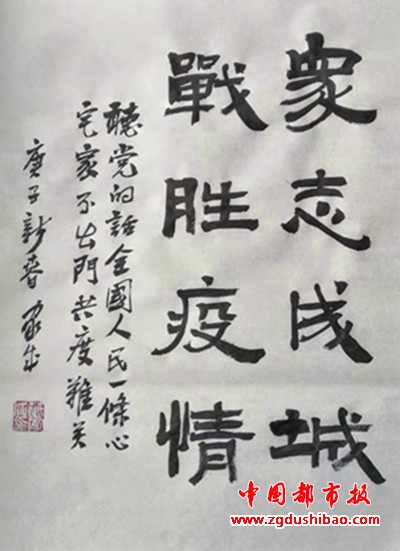 眾志成城
戰胜疫情
聽党的話全國人民一條心
宅家不出門共度難关
庚子新春
中国都市报
www.zgdushibao.com